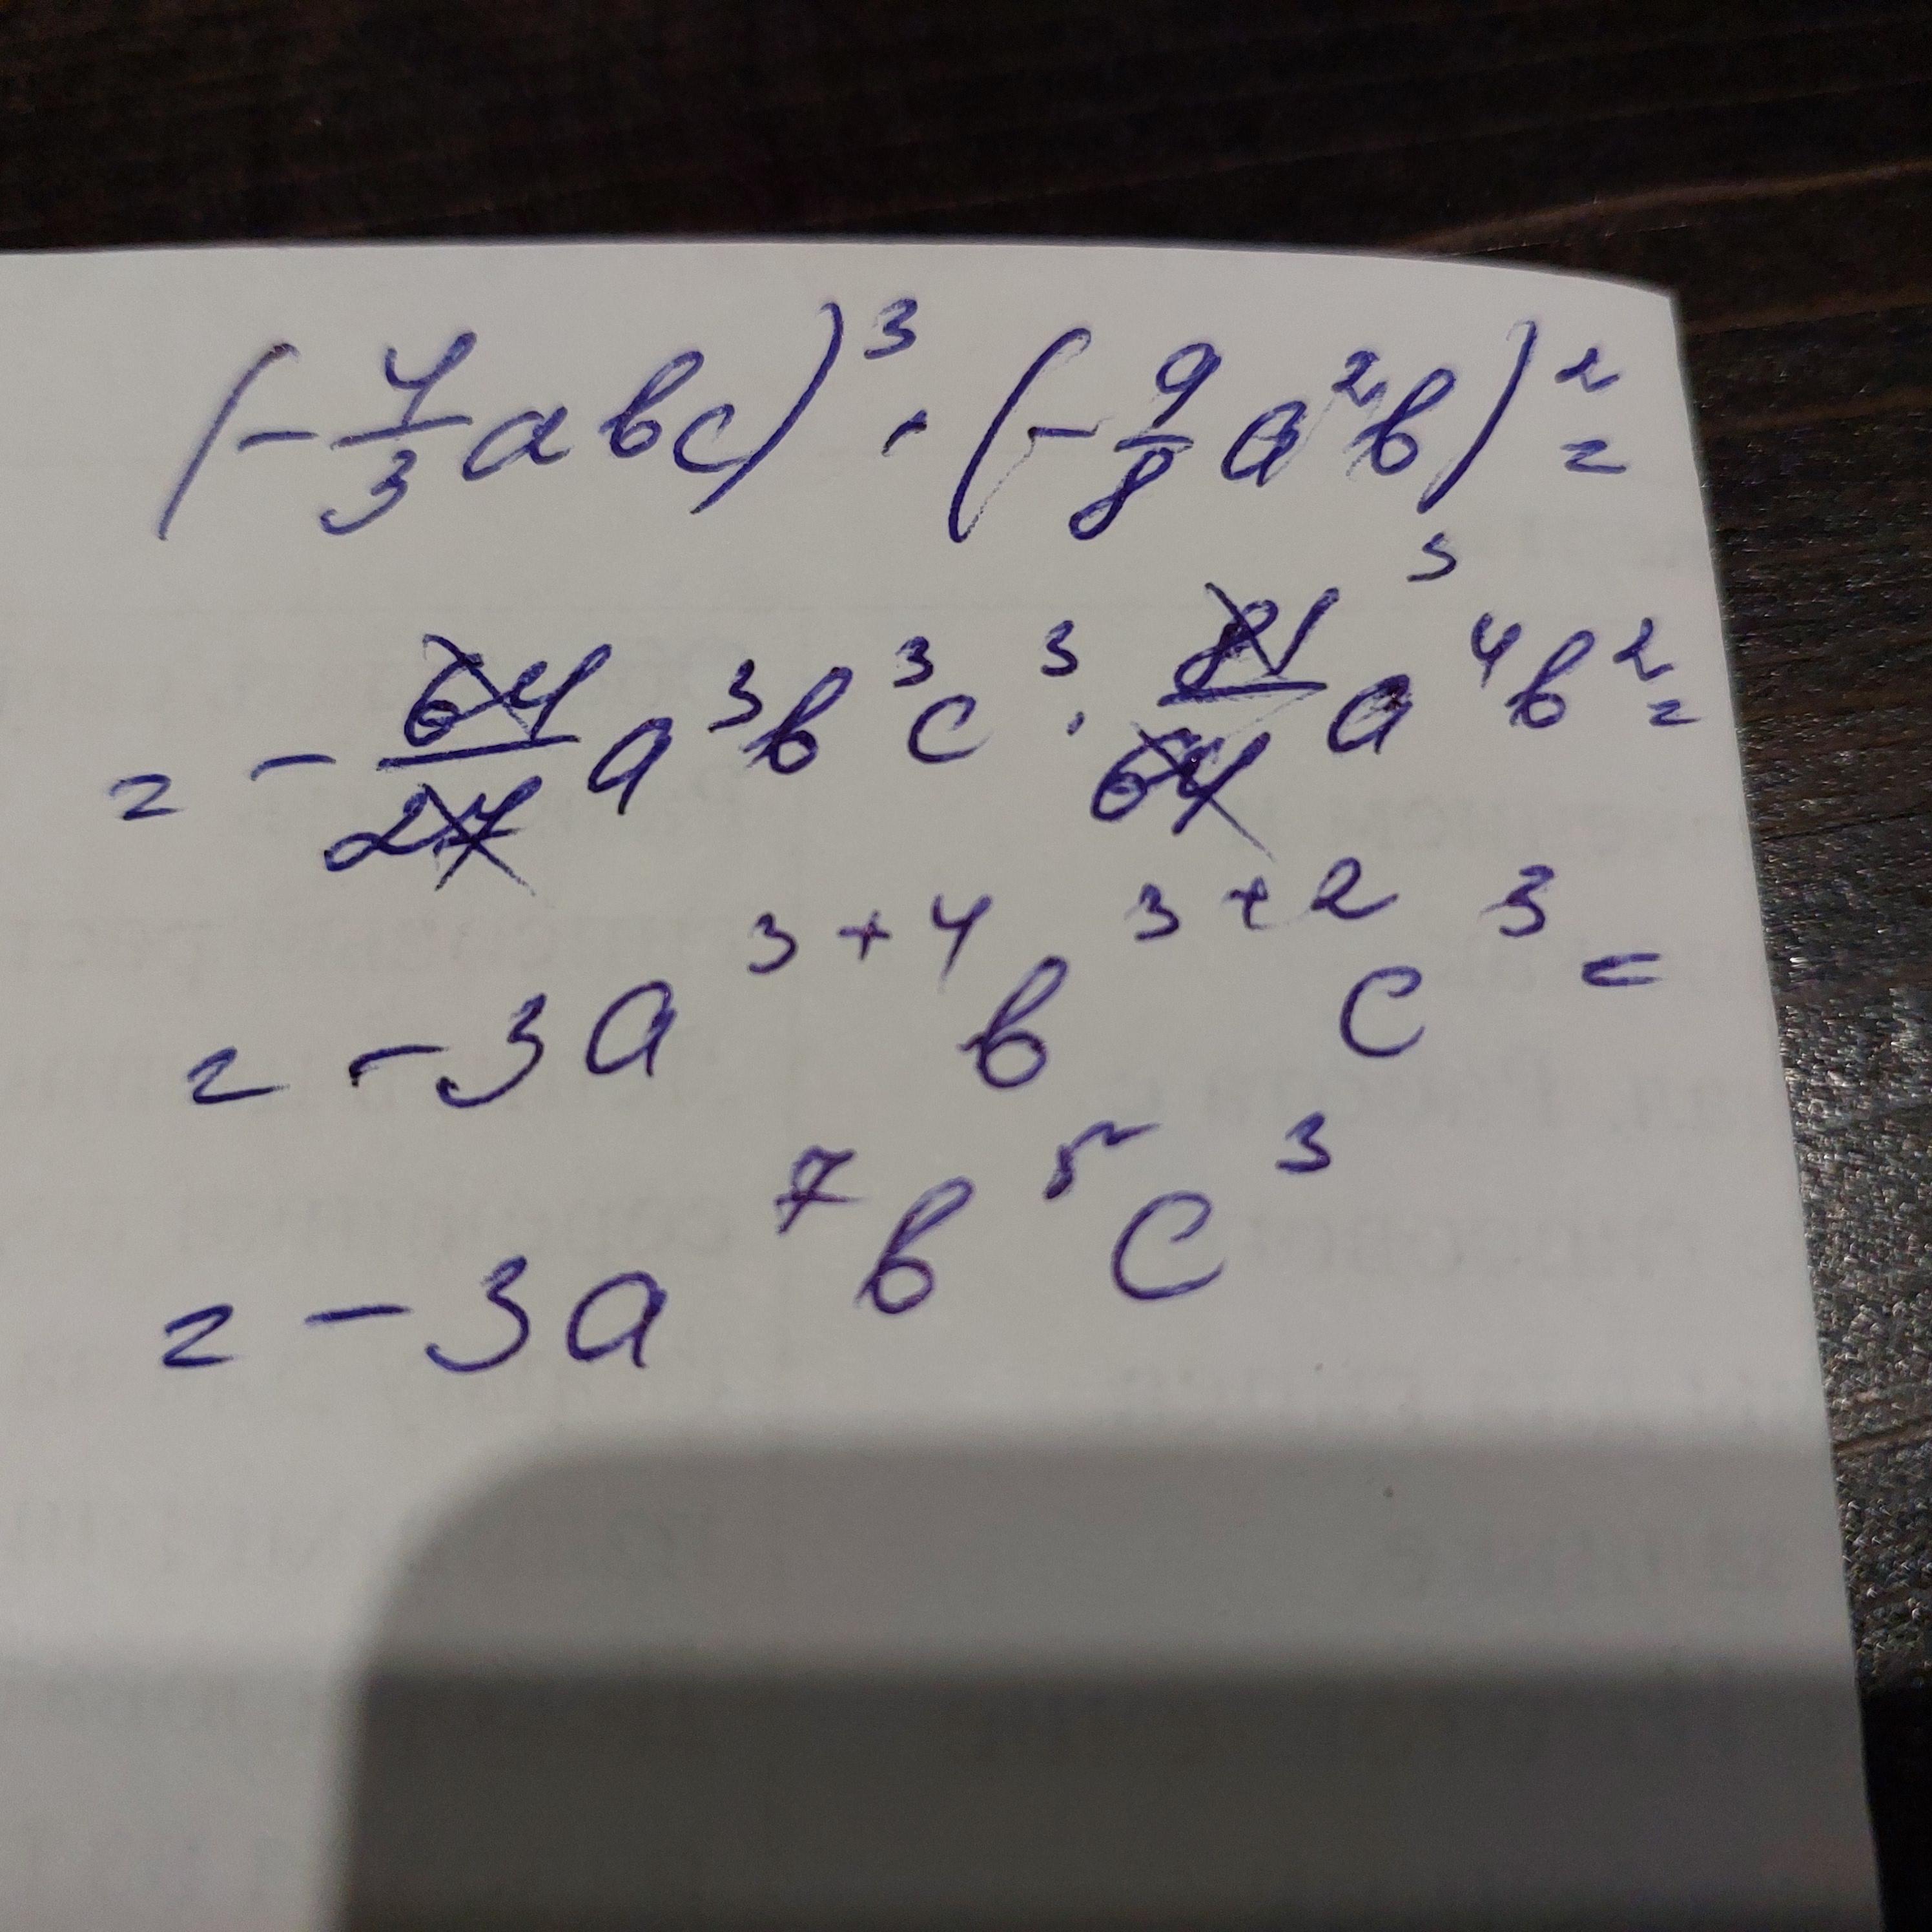 (-4/3 abc)³ · (-9/8 a²b)² =
= - 64/27 a³b³c³ · 81/64 ³ a⁴b² =
= -3a³⁺⁴ b³⁺² c³ =
= -3a⁷b⁵c³